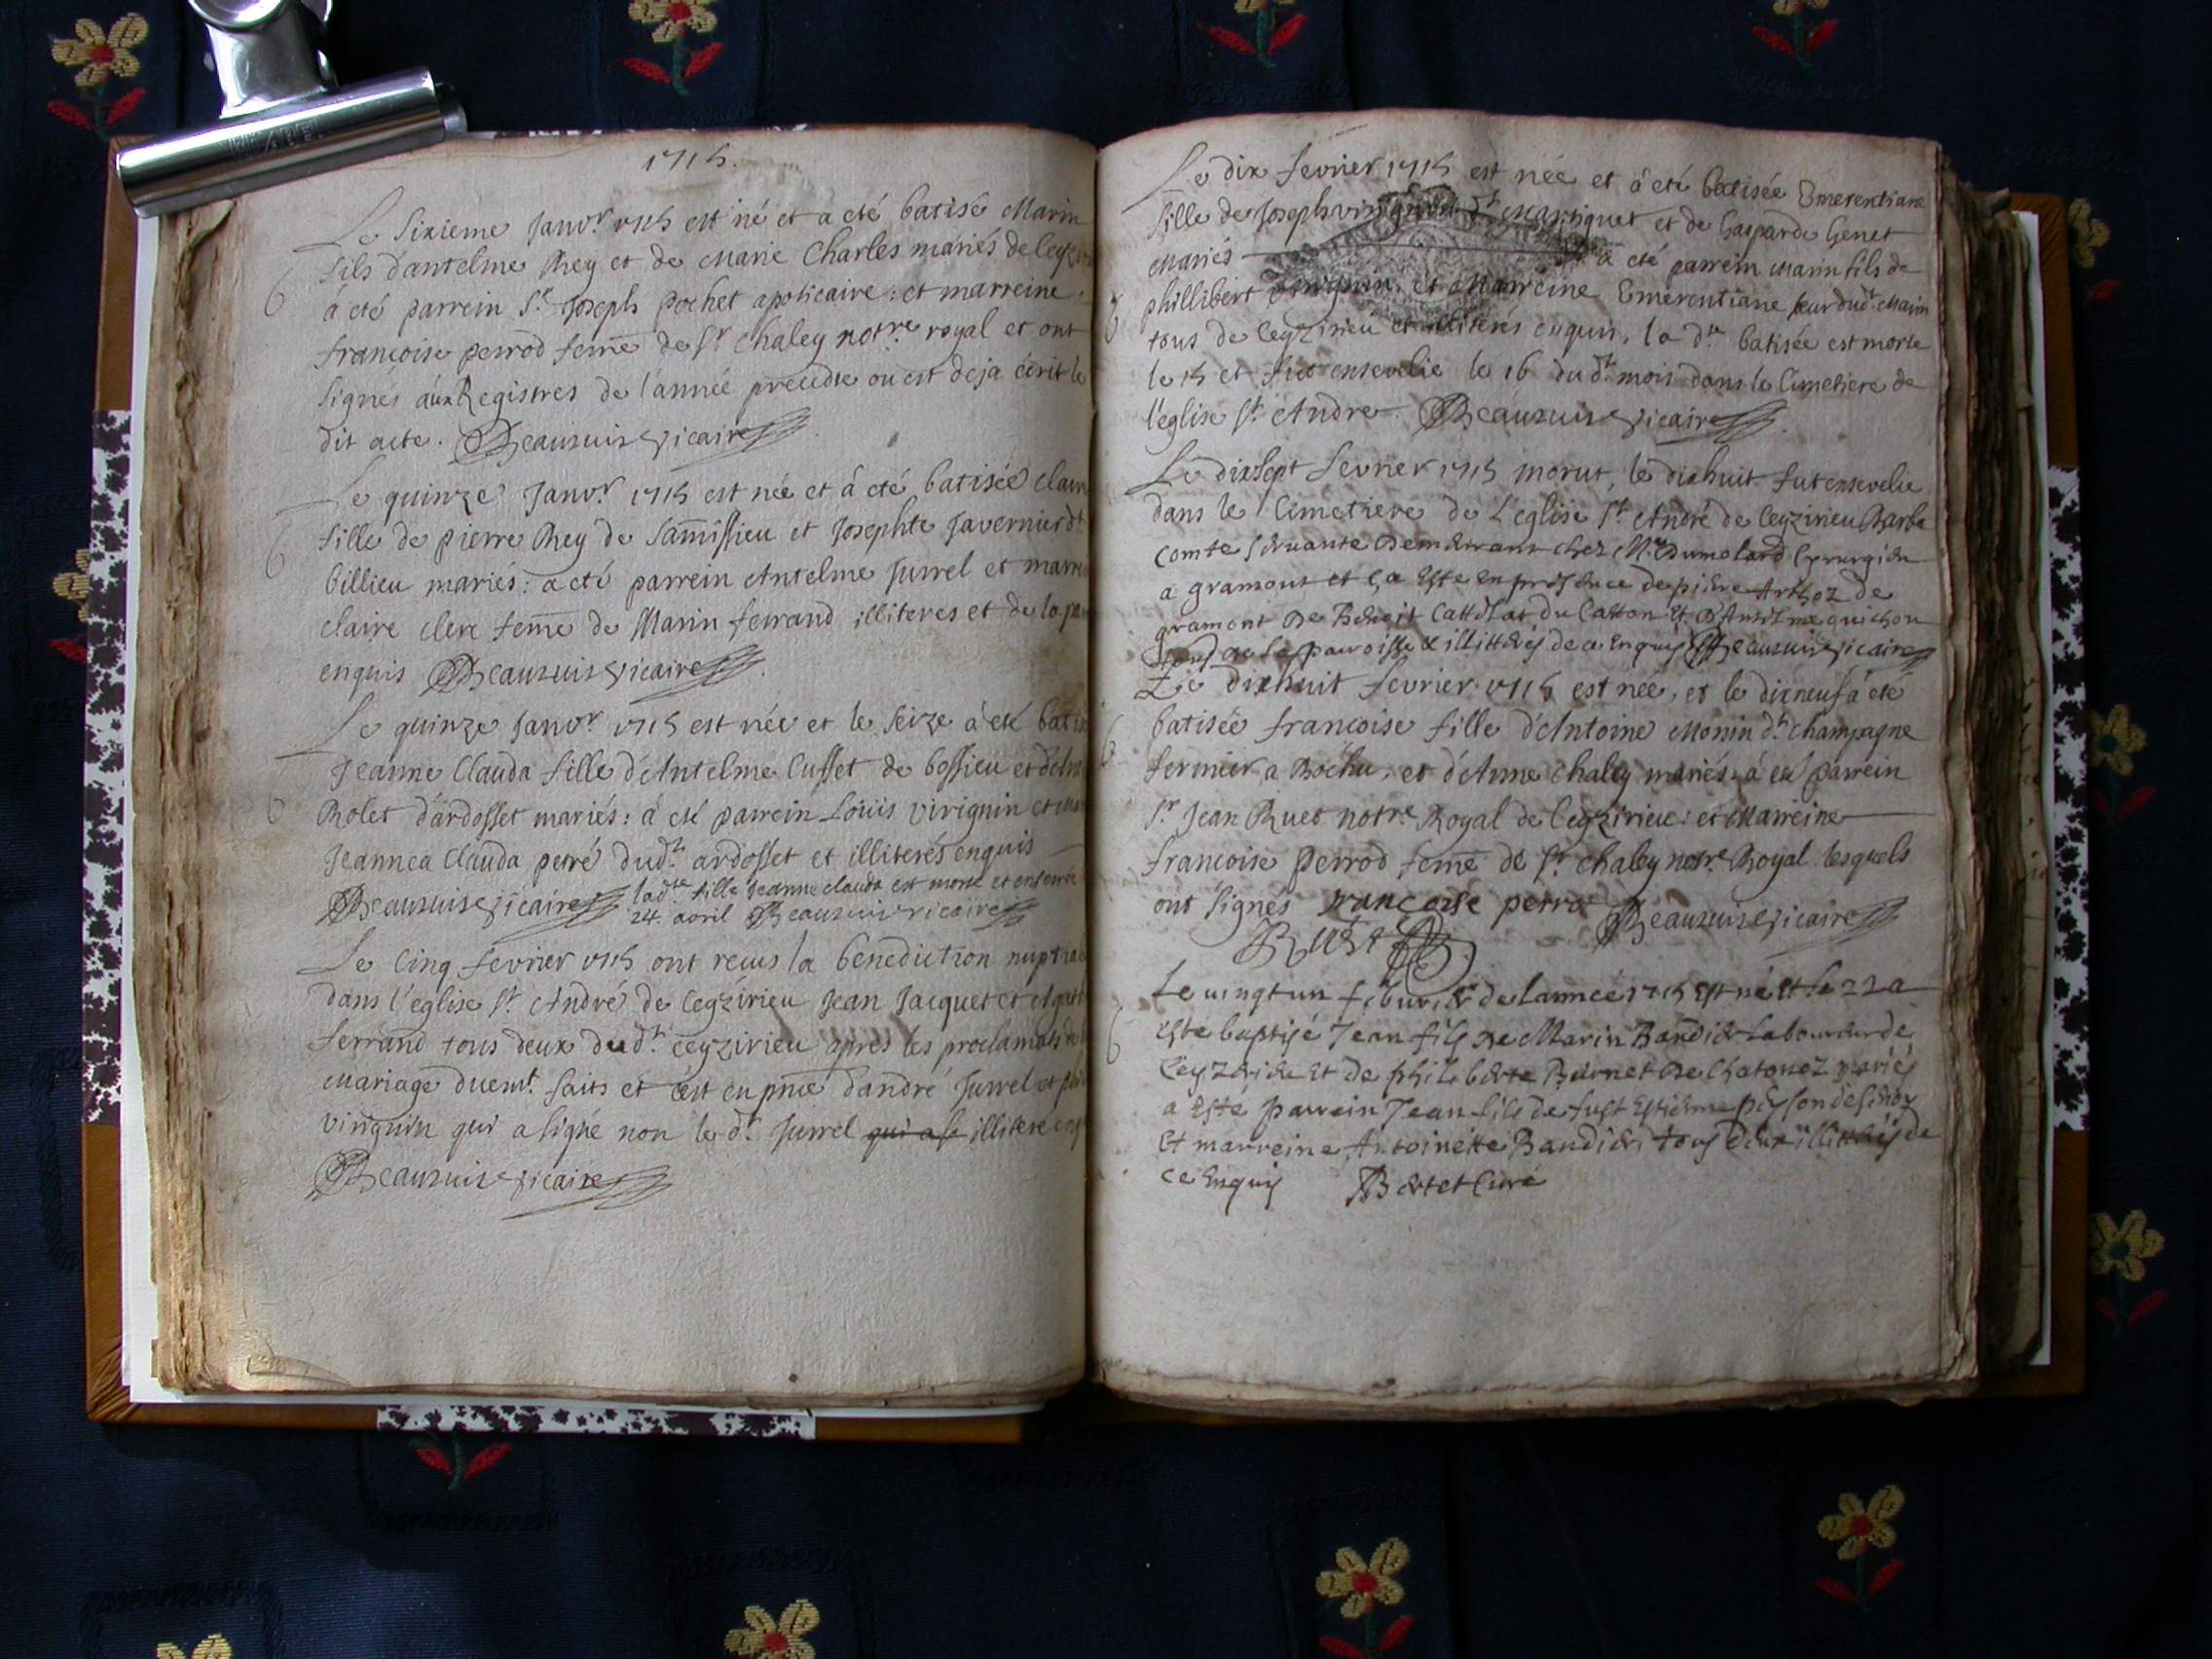 1715.
Le Sixieme Janvr. 1715 est né et a eté batisé Marin
fils d'antelme Rey et de Marie Charles mariés de
à eté parrein Sr. Joseph Pochet apoticaire: et marreine
francoise perrod feme de Sr Chaley notre royal et ont
signés aux Registres de l'année precedte ou est deja écrit le
dit acte. Beausuire vicaire
Le quinze Janvr. 1715 est née et à eté batisée
fille de pierre Rey de Samissieu et Josephte Javernier dt
billieu mariés: a eté parrein Antelme Jurrel et
claire clerc feme de Marin ferrand illiteres et de
enquis Beausuire vicaire
Le quinze Janvr 1715 est née et le seize à eté
Jeanne Clauda fille d'Antelme Cusset de bossieu et
Rolet d'ardosset mariés: à eté parrein Loüis virignin et
Jeannea Clauda petré dudt. ardosset et illiterés enquis
Beausuire vicaire ladte fille Jeanne clauda est morte et enterrée
24. avril Beausuire vicaire
Le Cinq fevrier 1715 ont recus la benediction
dans l'eglise St André de Ceyzirieu Jean Jacquet et
ferrand tous deux dudt. ceyzirieu apres les proclamats de
Mariage duemt. faits et c'est en pnce d'andré Jurrel et
viriguin qui a signé non le dt. Jurrel qui a se illiteré
Beausuire vicaire
Le dix fevrier 1715 est née et à eté batisée Emerentiane
fille de Joseph dt Martiguet et de Gasparde Genet
Mariés a eté parrein Marin fils de
phillibert et Marreine Emerentiane seur dudt. Marin
tous de Ceyzirieu et illiterés enquis, la dte batisée est morte
le 15 et fut ensevelie le 16 du dt. mois dans le Cimetiere de
l'eglise St. Andre. Beausuire vicaire
Le dixsept fevrier 1715 morut, le dixhuit fut ensevelie
dans le Cimetiere de L'eglise St. André de Ceyzirieu Barba
comte servante Demeurant chez Mr Dumolard
a gramont et ca Este en presence de pierre Arthoz de
gramont De Benoit du Catton Et D'Anselme quichon
de la parroisse & illitterés de ce Enquis Beausuire vicaire
Le dixhuit fevrier 1715 est née, et le dixneuf à eté
batisée francoise fille d'Antoine Monin dt. champagne
fermier a Rochu, et d'Anne chaley mariés: à eté parrein
Sr. Jean Ruet notre. Royal de Ceyzirieu: et Marreine
francoise perrod feme de Sr. chaley notre Royal lesquels
ont signés francoise perrod Beausuire vicaire
Ruet
Le uingt un feburier de lannee 1715 Est né Et le 22 a
Este baptisé Jean fils De Marin Bandier Laboureur de
Ceyzerieu Et de philiberte Burnet De Chatonoz mariés
a Este parrein Jean fils de fust Estienne
Et marreine Antoinette Bandier tous Deux illitterés de
ce Enquis Bertet Curé